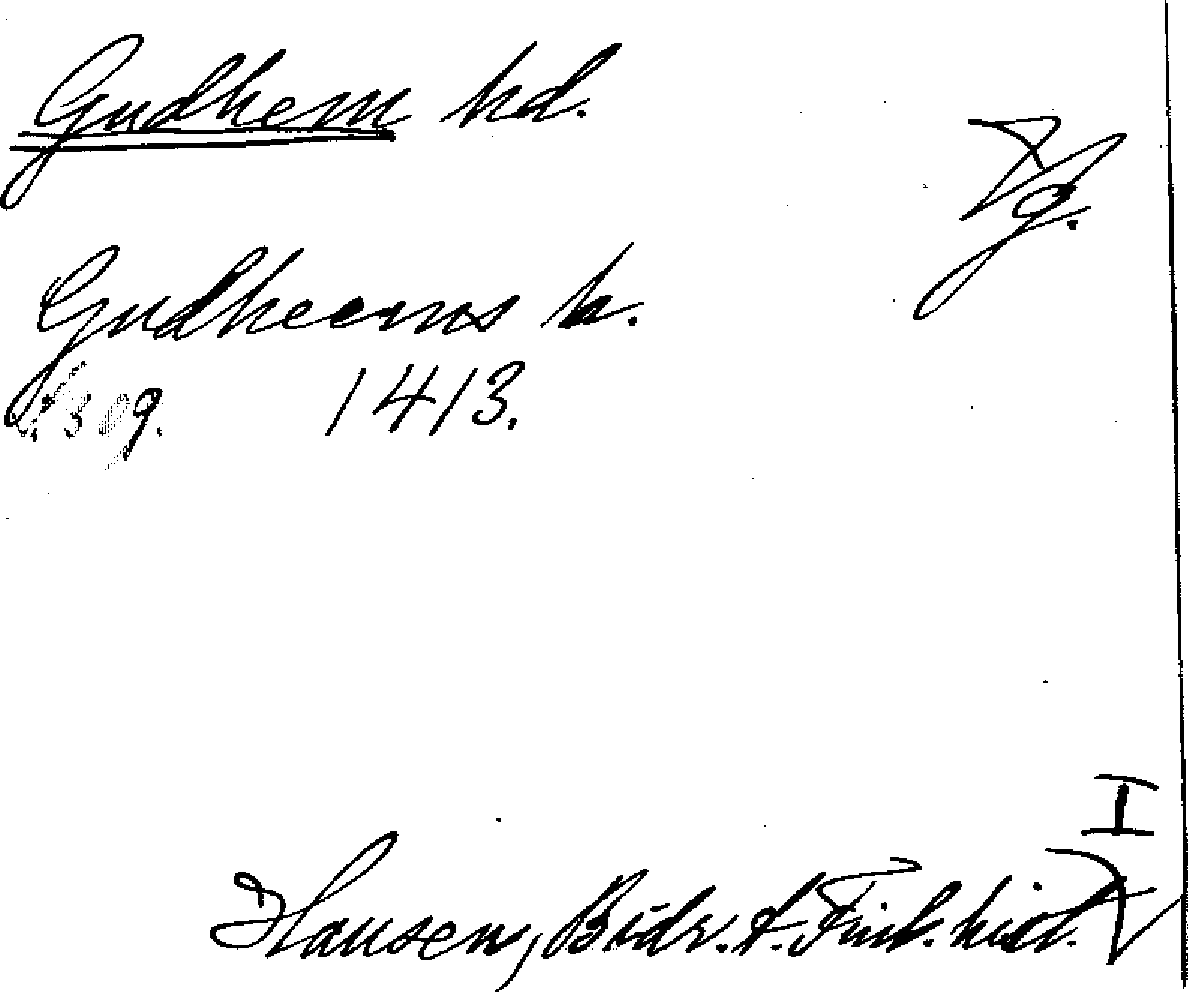 Gudhem hd.
Vg.
Gudheems h.
s. 309. 1413.
I
Hausen, Bidr. t. Finl. hist.